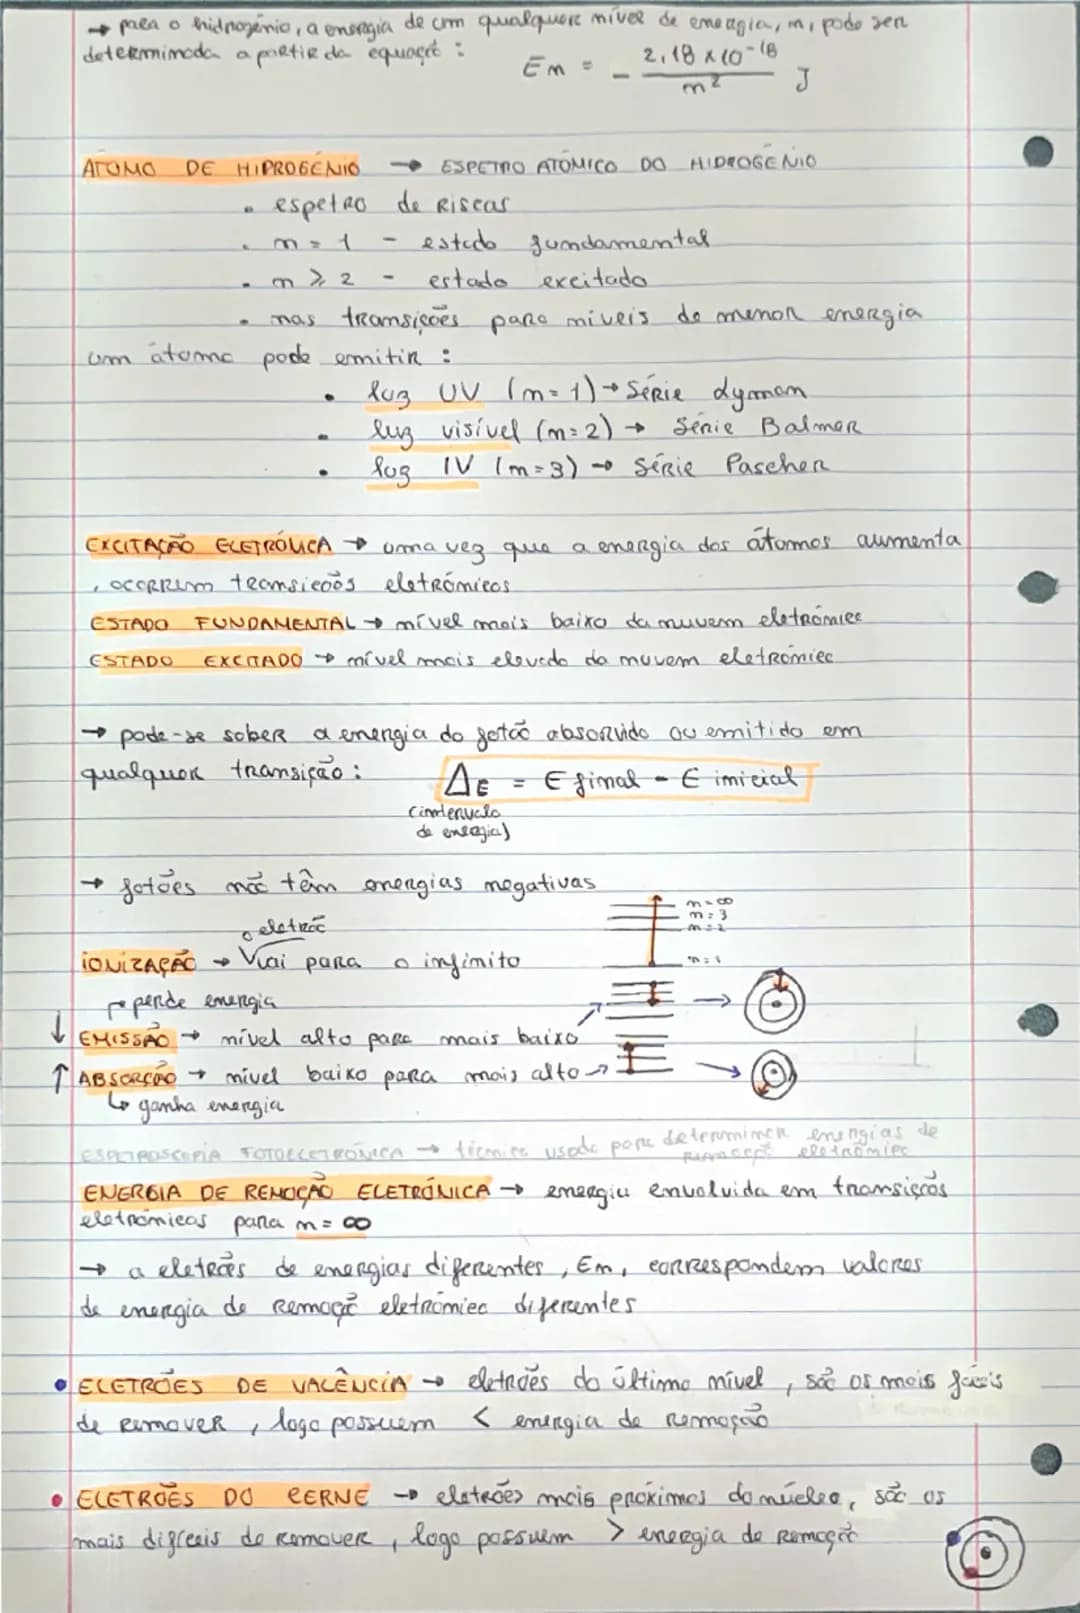 → para o hidrogénio, a energia de um qualquer nível de energia, n, pode ser
determinada a partir da equação :
En = - 2,18 x 10^-18 / n² J
ÁTOMO DE HIDROGÉNIO → ESPETRO ATÓMICO DO HIDROGÉNIO
• espetro de riscas
• n = 1 - estado fundamental
• n ⩾ 2 - estado excitado
• nas transições para níveis de menor energia
um átomo pode emitir :
• luz UV (n=1) → Série Lyman
• luz visível (n=2) → Série Balmer
• luz IV (n=3) → Série Paschen
EXCITAÇÃO ELETRÓNICA → uma vez que a energia dos átomos aumenta
, ocorrem transições eletrónicas
ESTADO FUNDAMENTAL → nível mais baixo da nuvem eletrónica
ESTADO EXCITADO → nível mais elevado da nuvem eletrónica
→ pode-se saber a energia do fotão absorvido ou emitido em
qualquer transição :
ΔE = E final - E inicial
(intervalo
de energia)
→ fotões não têm energias negativas
n=∞
n=3
n=2
n=1
o eletrão
IONIZAÇÃO → Vai para o infinito
perde energia
↓ EMISSÃO → nível alto para mais baixo
↑ ABSORÇÃO → nível baixo para mais alto
↳ ganha energia
ESPETROSCOPIA FOTOELETRÓNICA → técnica usada para determinar energias de
remoção eletrónica
ENERGIA DE REMOÇÃO ELETRÓNICA → energia envolvida em transições
eletrónicas para n = ∞
→ a eletrões de energias diferentes, En, correspondem valores
de energia de remoção eletrónica diferentes
• ELETRÕES DE VALÊNCIA → eletrões do último nível, são os mais fáceis
de remover, logo possuem < energia de remoção
• ELETRÕES DO CERNE → eletrões mais próximos do núcleo, são os
mais difíceis de remover, logo possuem > energia de remoção